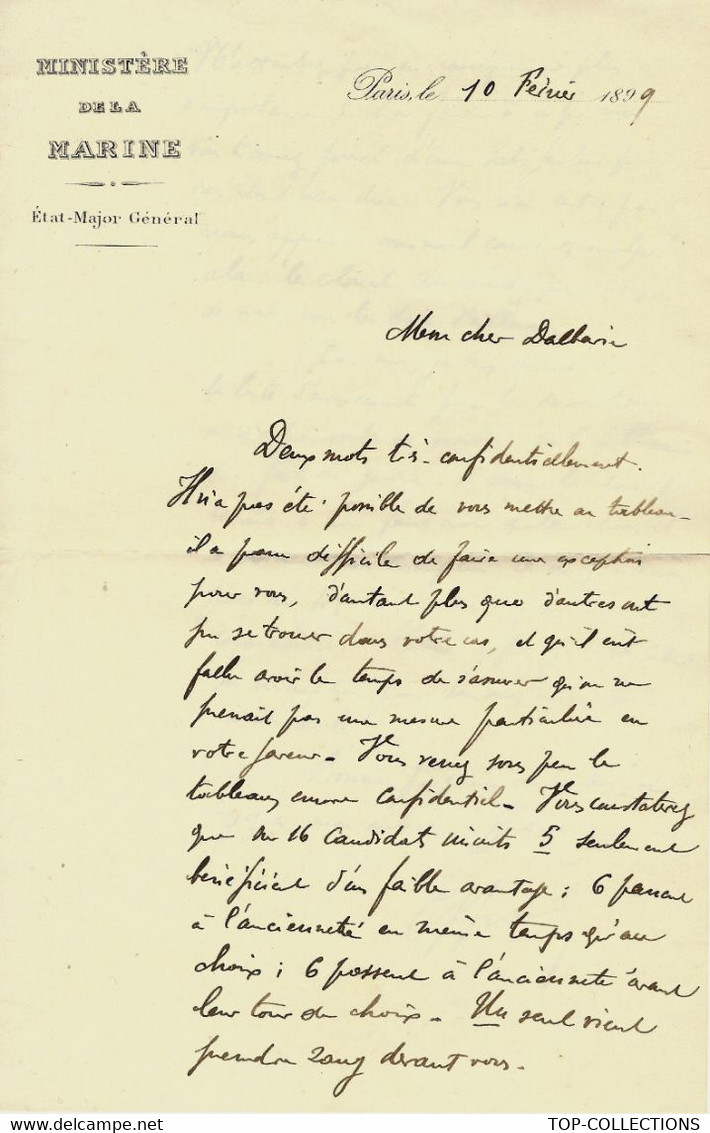 MINISTÈRE
DE LA
MARINE
État-Major Général
Paris, le 10 Février 1899
Mon cher
Deux mots très confidentiellement.
Il n'a pas été possible de vous mettre au tableau -
il a paru difficile de faire une exception
pour vous, d'autant plus que d'autres ont
pu se trouver dans votre cas, et qu'il eût
fallu avoir le temps de s'assurer qu'on ne
prenait pas une mesure particulière en
votre faveur - Vous verrez sous peu le
tableau encore confidentiel - Vous constaterez
que sur 16 candidats inscrits 5 seulement
bénéficient d'un faible avantage ; 6 passent
à l'ancienneté en même temps qu'au
choix ; 6 passent à l'ancienneté avant
leur tour de choix - Un seul vient
prendre rang devant vous -
delcampe.net
TOP-COLLECTIONS